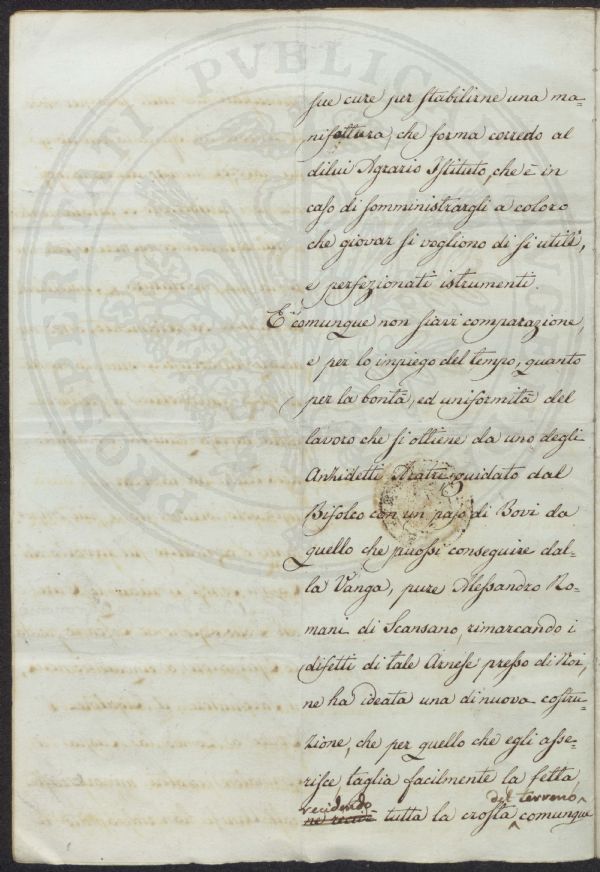 PROSPERITATI PVBLICAE
sue cure per stabilirne una ma=
nifattura, che forma corredo al
dilui Agrario Istituto, che è in
caso di somministrargli a coloro
che giovar si vogliono di sì utili,
e perfezionati istrumenti.
E comunque non siavi comparazione,
e per lo impiego del tempo, quanto
per la bontà, ed uniformità del
lavoro che si ottiene da uno degli
Anzidetti Aratri guidato dal
Bifolco con un pajo di Bovi da
quello che puossi conseguire dal=
la Vanga, pure Alessandro Ro=
mani di Scansano, rimarcando i
difetti di tale Arnese presso di Noi,
ne ha ideata una di nuova costru=
zione, che per quello che egli asse=
risce, taglia facilmente la fetta
recidendo del terreno
ne recide tutta la crosta comunque